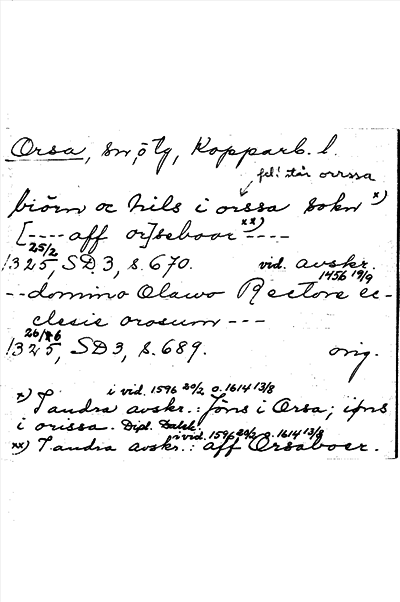 Orsa, sn, ö tg, Kopparb. l.
fel! står orrssa
biörn oc nils i orssa sokn x)
[---- aff or]seboar xx) ----
1325 25/2, SD 3, s. 670. vid. avskr. 1456 19/9
-- domino Olawo Rectore ec-
clesie orosum ---
1325 26/6, SD 3, s. 689. orig.
x) I andra avskr.: i vid. 1596 20/2 o. 1614 13/8 Jöns i Orsa; ijns
i orissa. Dipl. Dalek.
xx) I andra avskr.: i vid. 1596 20/2 o. 1614 13/8 aff Orsaboer.